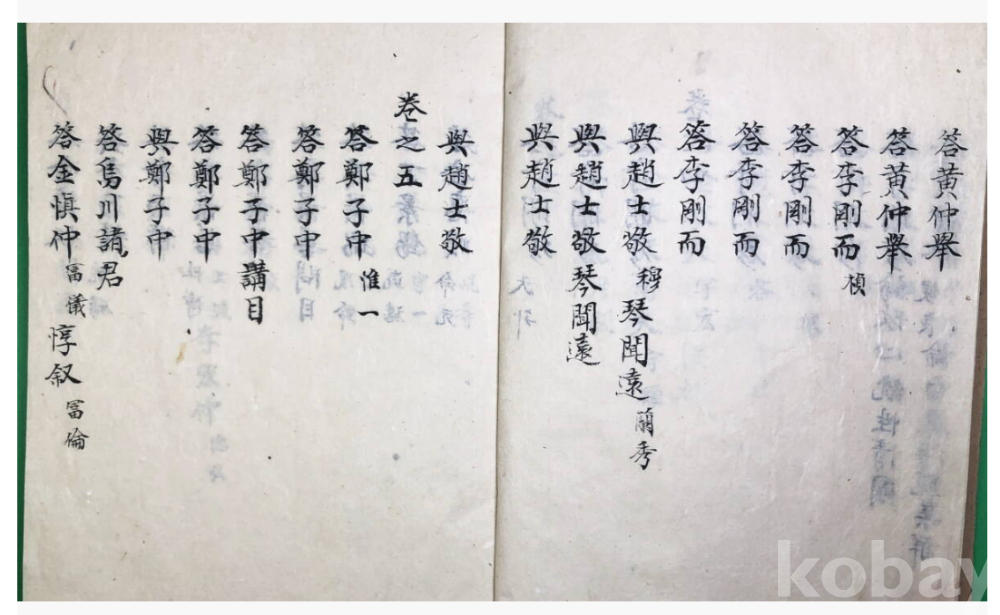 答黃仲擧
答黃仲擧
答李剛而 楨
答李剛而
答李剛而
答李剛而
與趙士敬 穆 琴聞遠 蘭秀
與趙士敬 琴聞遠
與趙士敬
與趙士敬
卷之五
答鄭子中 惟一
答鄭子中問目
答鄭子中講目
答鄭子中
與鄭子中
答烏川諸君
答金愼仲 富儀 惇叙 富倫
kobay